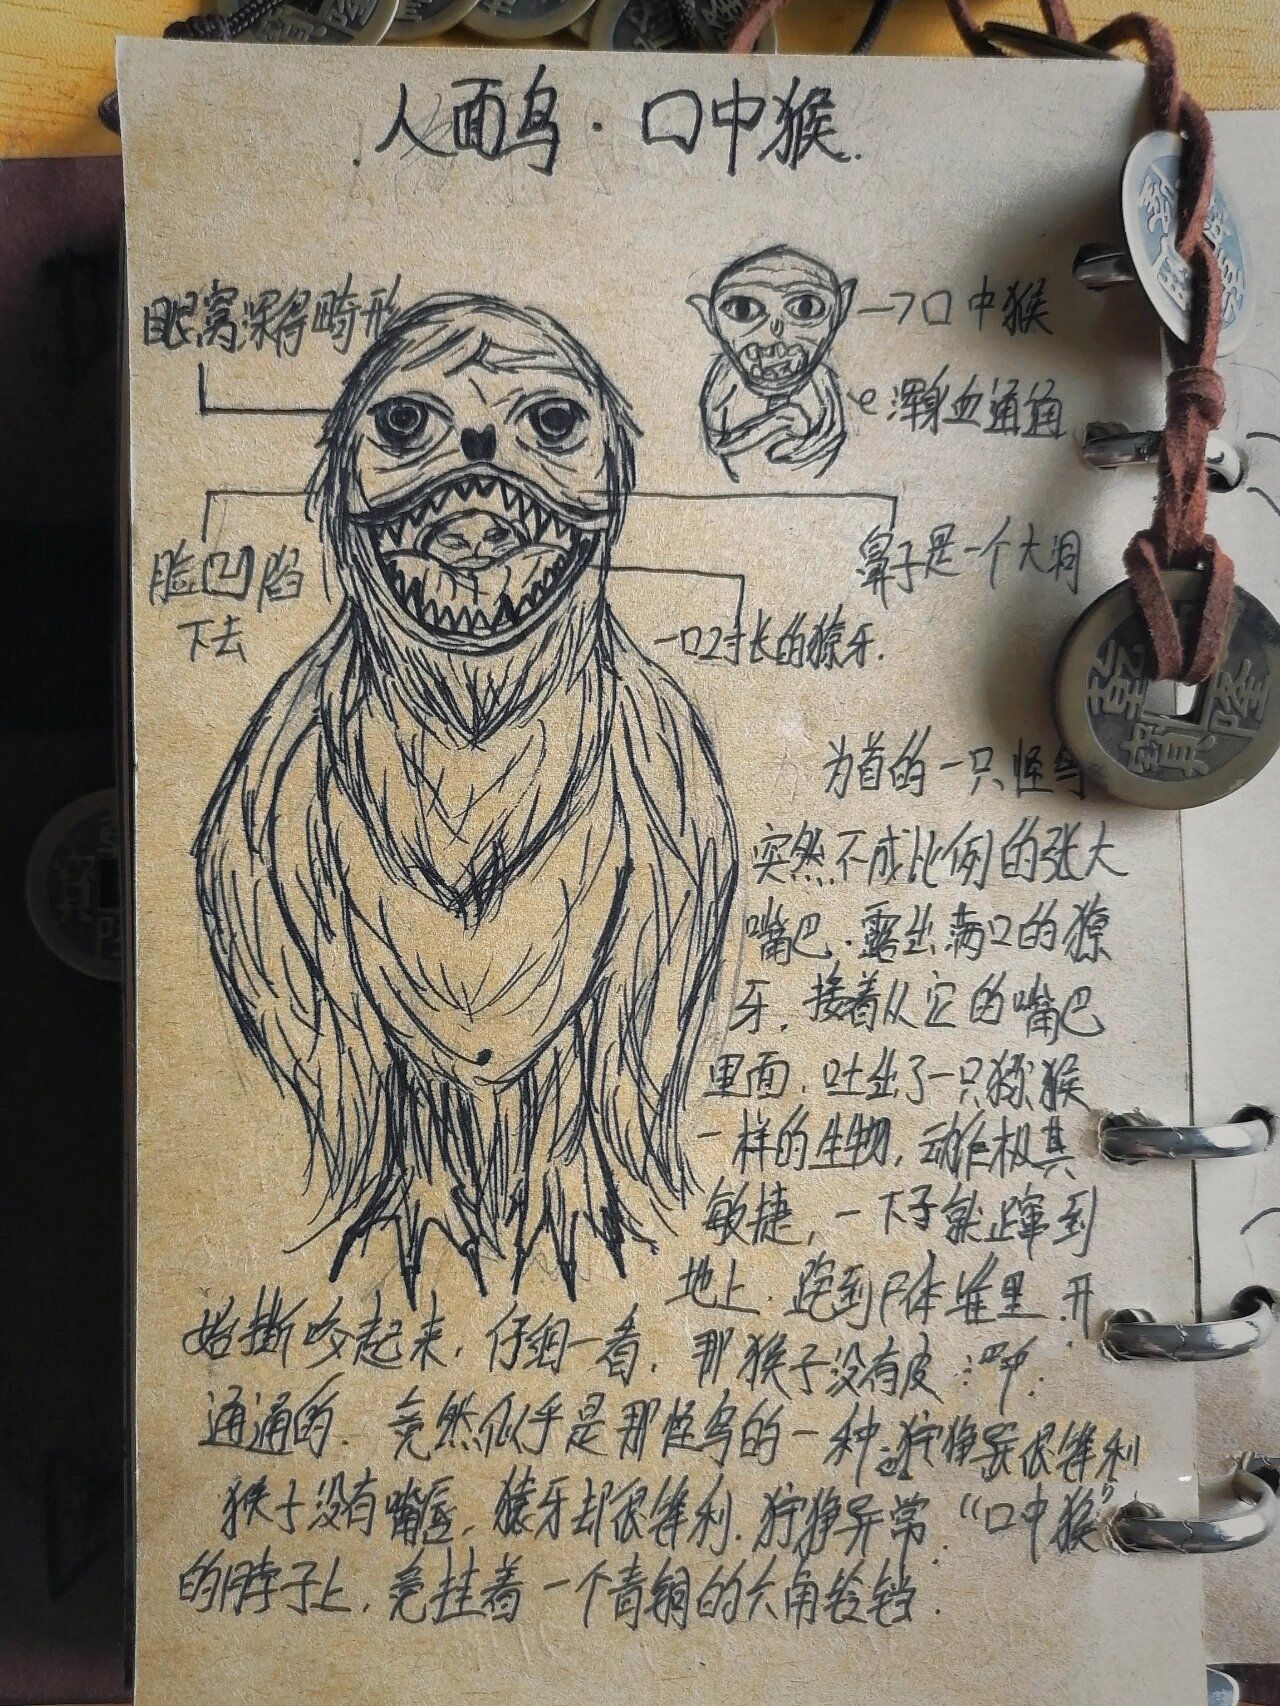 .人面鸟·口中猴.
眼窝深得畸形
→口中猴
浑身血通通
脸凹陷
下去
鼻子是一个大洞
一口2寸长的獠牙.
为首的一只怪鸟
突然不成比例的张大
嘴巴.露出满口的獠
牙.接着从它的嘴巴
里面.吐出了一只猕猴
一样的生物,动作极其
敏捷,一下子就蹿到
地上.跑到尸体堆里.开
始撕咬起来.仔细一看.那猴子没有皮
通通的.竟然似乎是那怪鸟的一种 狰狞异很锋利
猴子没有嘴唇,獠牙却很锋利.狞狰异常.“口中猴”
的脖子上,竟挂着一个青铜的六角铃铛.
乾隆